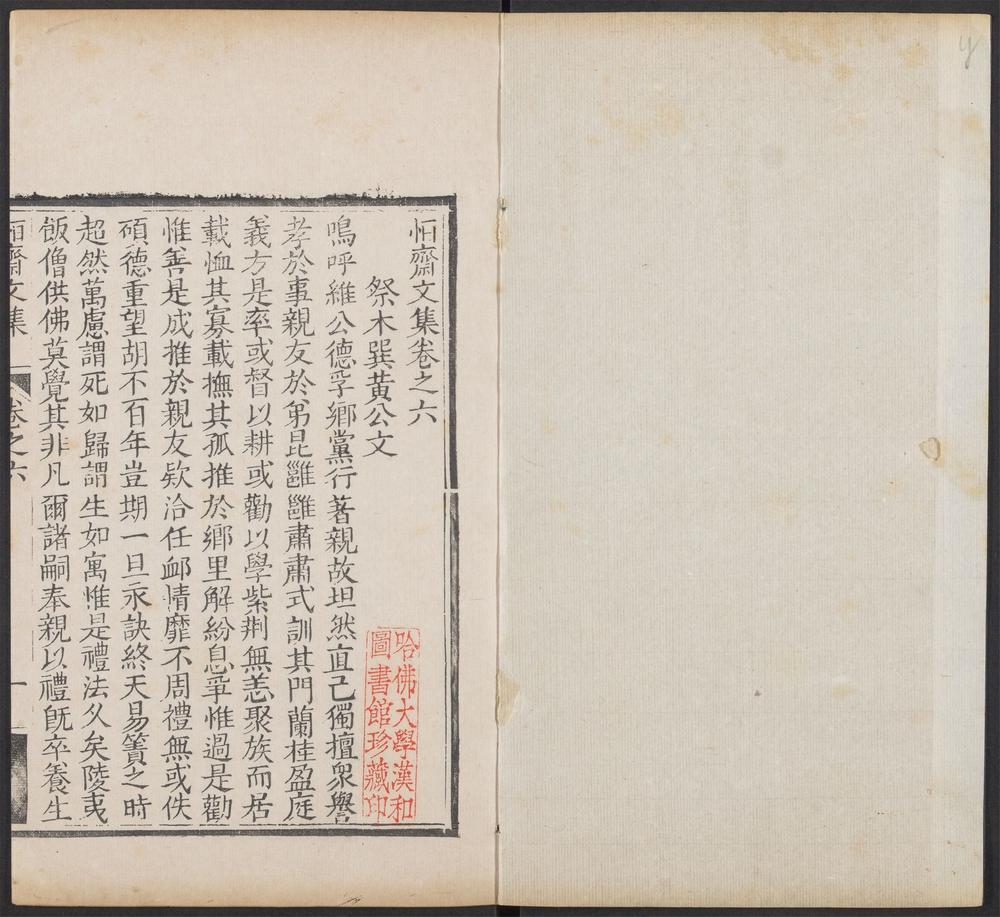 怕齋文集卷之六
祭木巽黃公文
嗚呼維公德孚鄉黨行著親故坦然直己獨擅衆譽
孝於事親友於弟昆雝雝肅肅式訓其門蘭桂盈庭
義方是率或督以耕或勸以學紫荆無恙聚族而居
載恤其寡載撫其孤推於鄉里解紛息爭惟過是勸
惟善是成推於親友欵洽任邮情靡不周禮無或佚
碩德重望胡不百年豈期一旦永訣終天易簀之時
超然萬慮謂死如歸謂生如寓惟是禮法久矣陵夷
飯僧供佛莫覺其非凡爾諸嗣奉親以禮旣卒養生
怕齋文集
卷之六
一
哈佛大學漢和
圖書館珍藏印